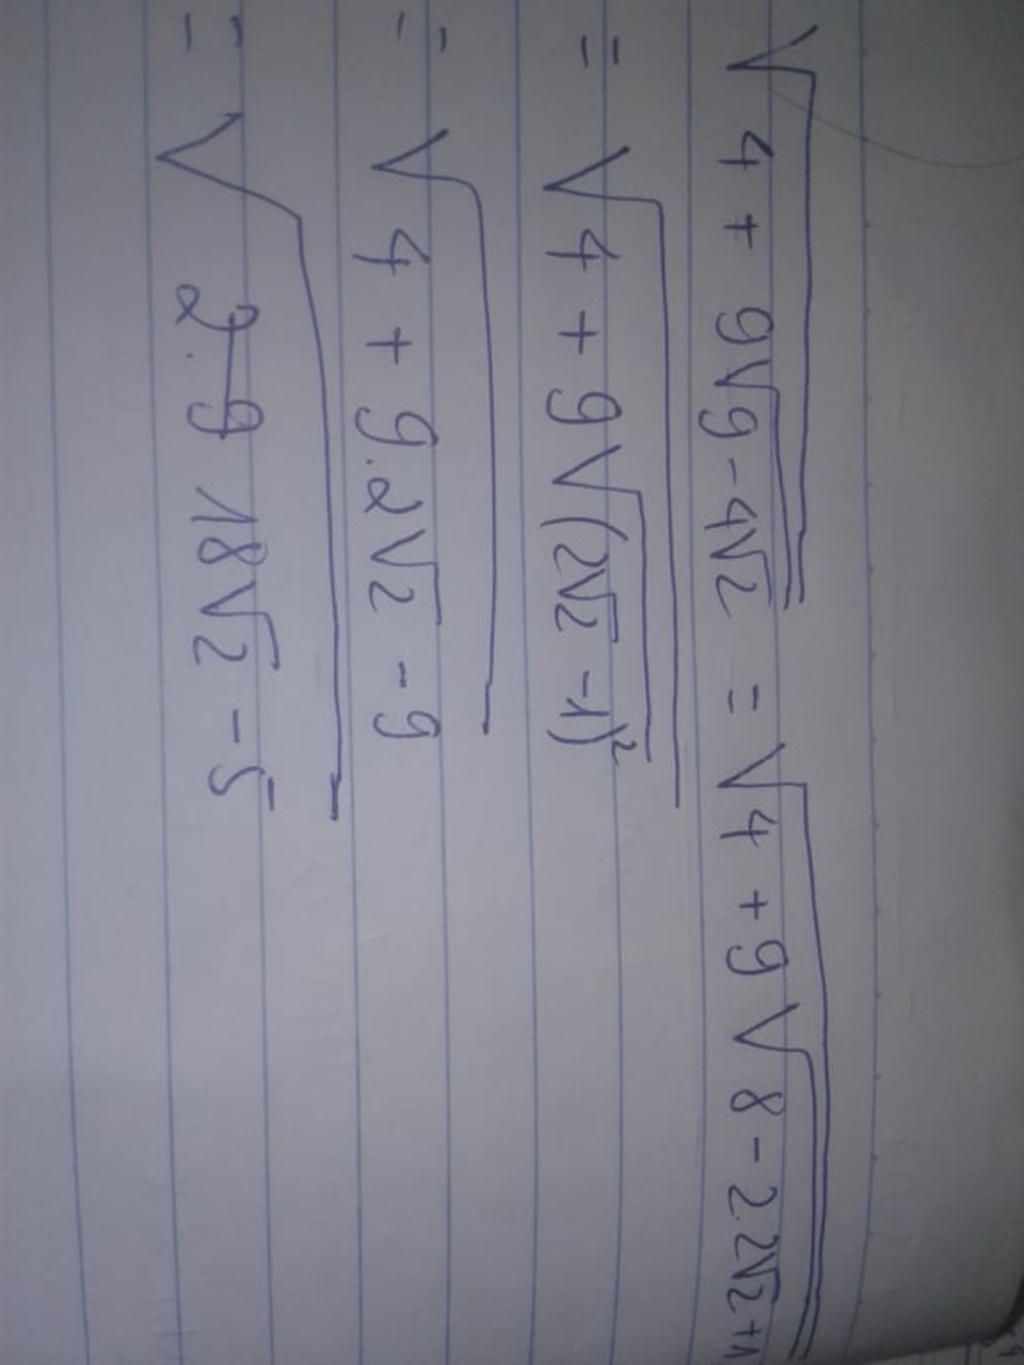 √(4 + 9√(9 - 4√2)) = √(4 + 9√(8 - 2.2√2 + 1))
= √(4 + 9√((2√2 - 1)²))
= √(4 + 9.2√2 - 9)
= √(18√2 - 5)